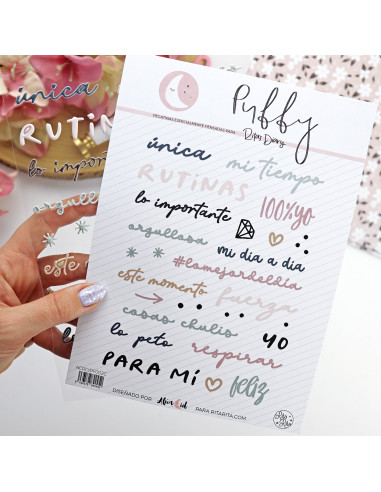 única
RUTINAS
lo importante
orgullosa
este momento
Puffy
PEGATINAS ESPECIALMENTE PENSADAS PARA
Ripas Diary
única mi tiempo
RUTINAS
lo importante 100%yo
orgullosa mi día a día
#lomejordeldía
este momento fuerza
cosas chulis yo
lo peto respirar
PARA MÍ feliz
DISEÑADO POR PARA RITARITA.COM